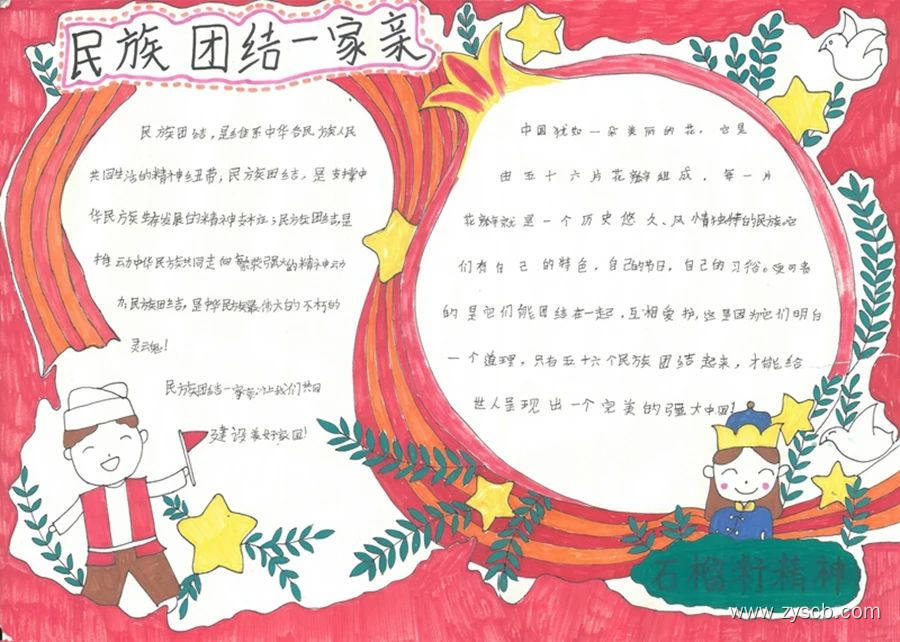 民族团结一家亲
民族团结，是维系中华各民族人民
共同生活的精神纽带，民族团结，是支撑中
华民族生存发展的精神支柱；民族团结，是
推动中华民族共同走向繁荣强大的精神动
力，民族团结，是中华民族最伟大的不朽的
灵魂！
民族团结一家亲，让我们共同
建设美好家园！
中国犹如一朵美丽的花，它是
由五十六片花瓣组成，每一片
花瓣就是一个历史悠久、风情独特的民族，它
们有自己的特色，自己的节日，自己的习俗。更可贵
的是它们能团结在一起，互相爱护，这是因为它们明白
一个道理，只有五十六个民族团结起来，才能给
世人呈现出一个完美的强大中国！
石榴籽精神
www.zyscb.com